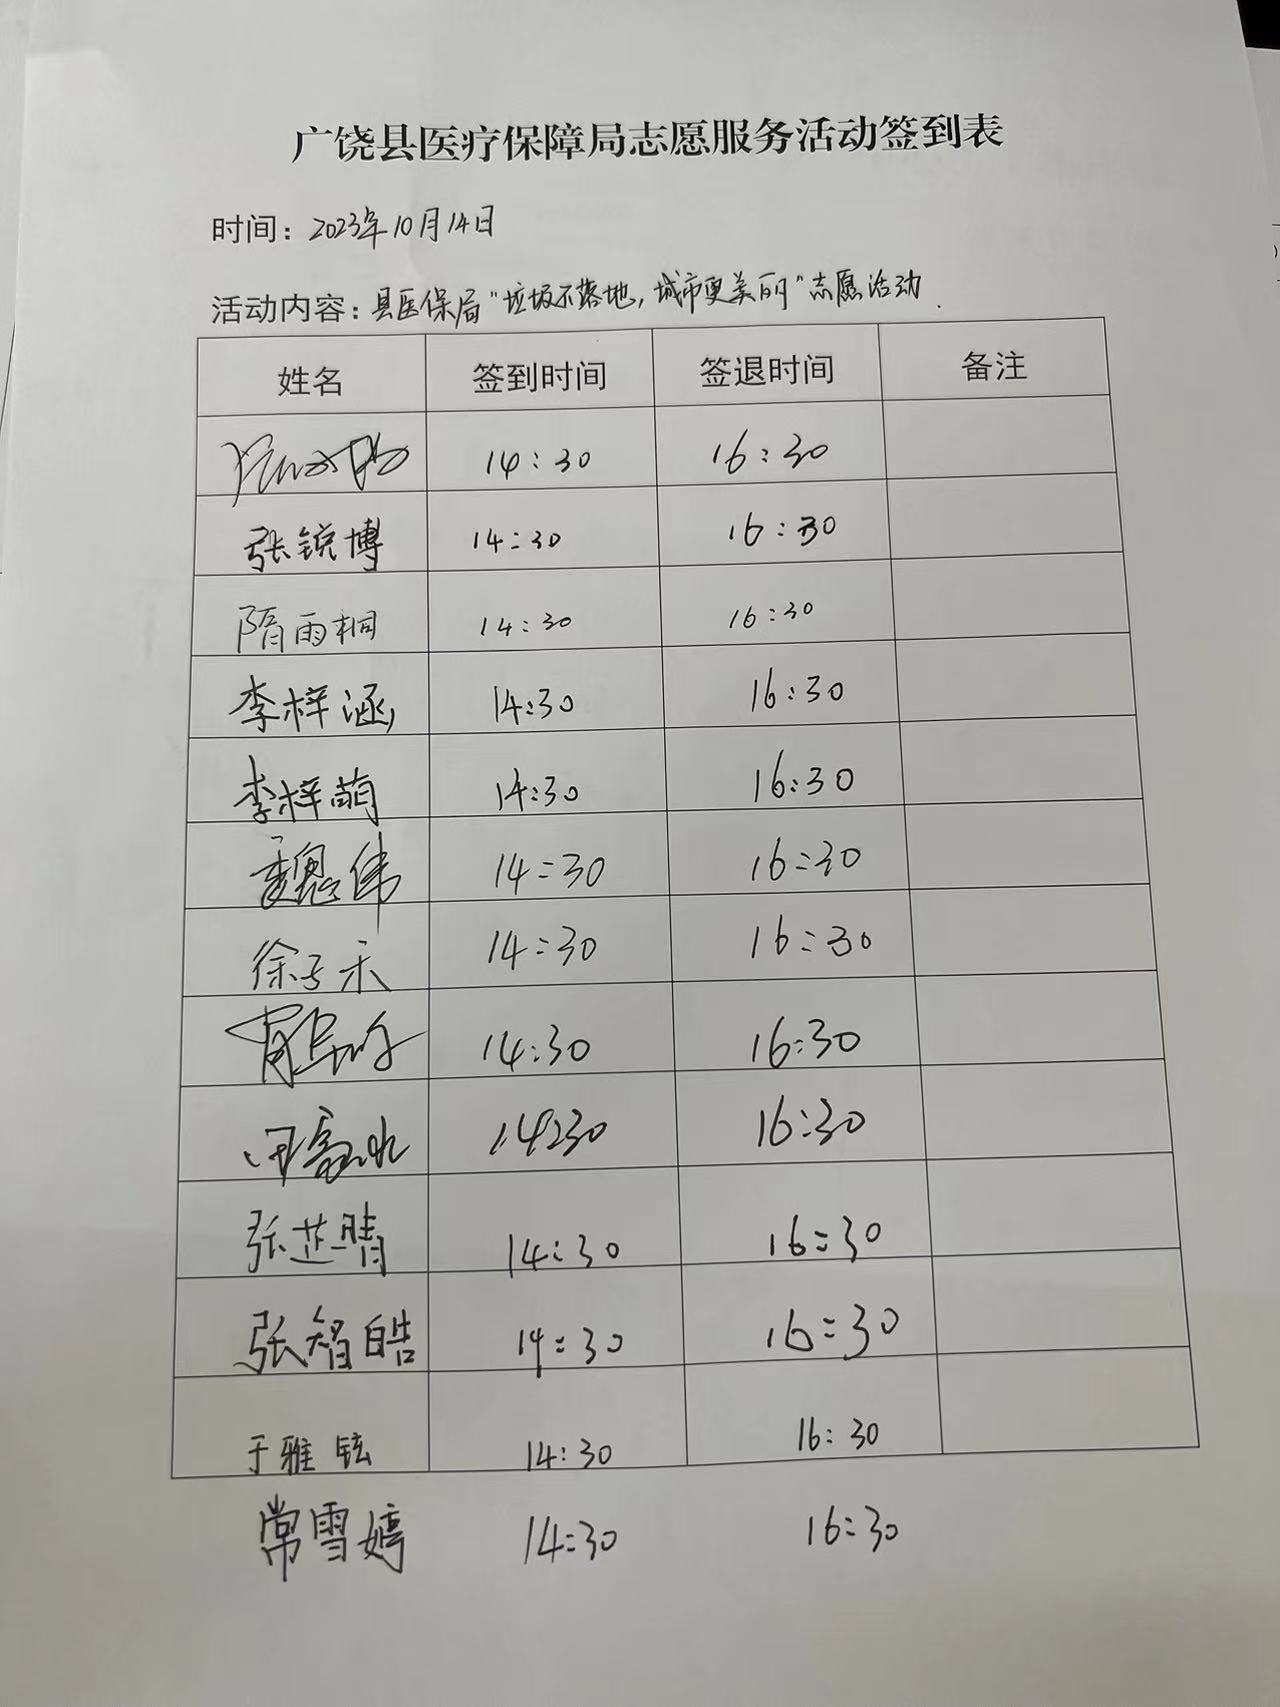 广饶县医疗保障局志愿服务活动签到表
时间：2023年10月14日
活动内容：县医保局“垃圾不落地，城市更美丽”志愿活动.
姓名 签到时间 签退时间 备注
14:30 16:30
张锐博 14:30 16:30
隋雨桐 14:30 16:30
李梓涵 14:30 16:30
李梓萌 14:30 16:30
魏伟 14:30 16:30
徐子禾 14:30 16:30
14:30 16:30
14:30 16:30
张芷晴 14:30 16:30
张智皓 14:30 16:30
于雅铉 14:30 16:30
常雪婷 14:30 16:30